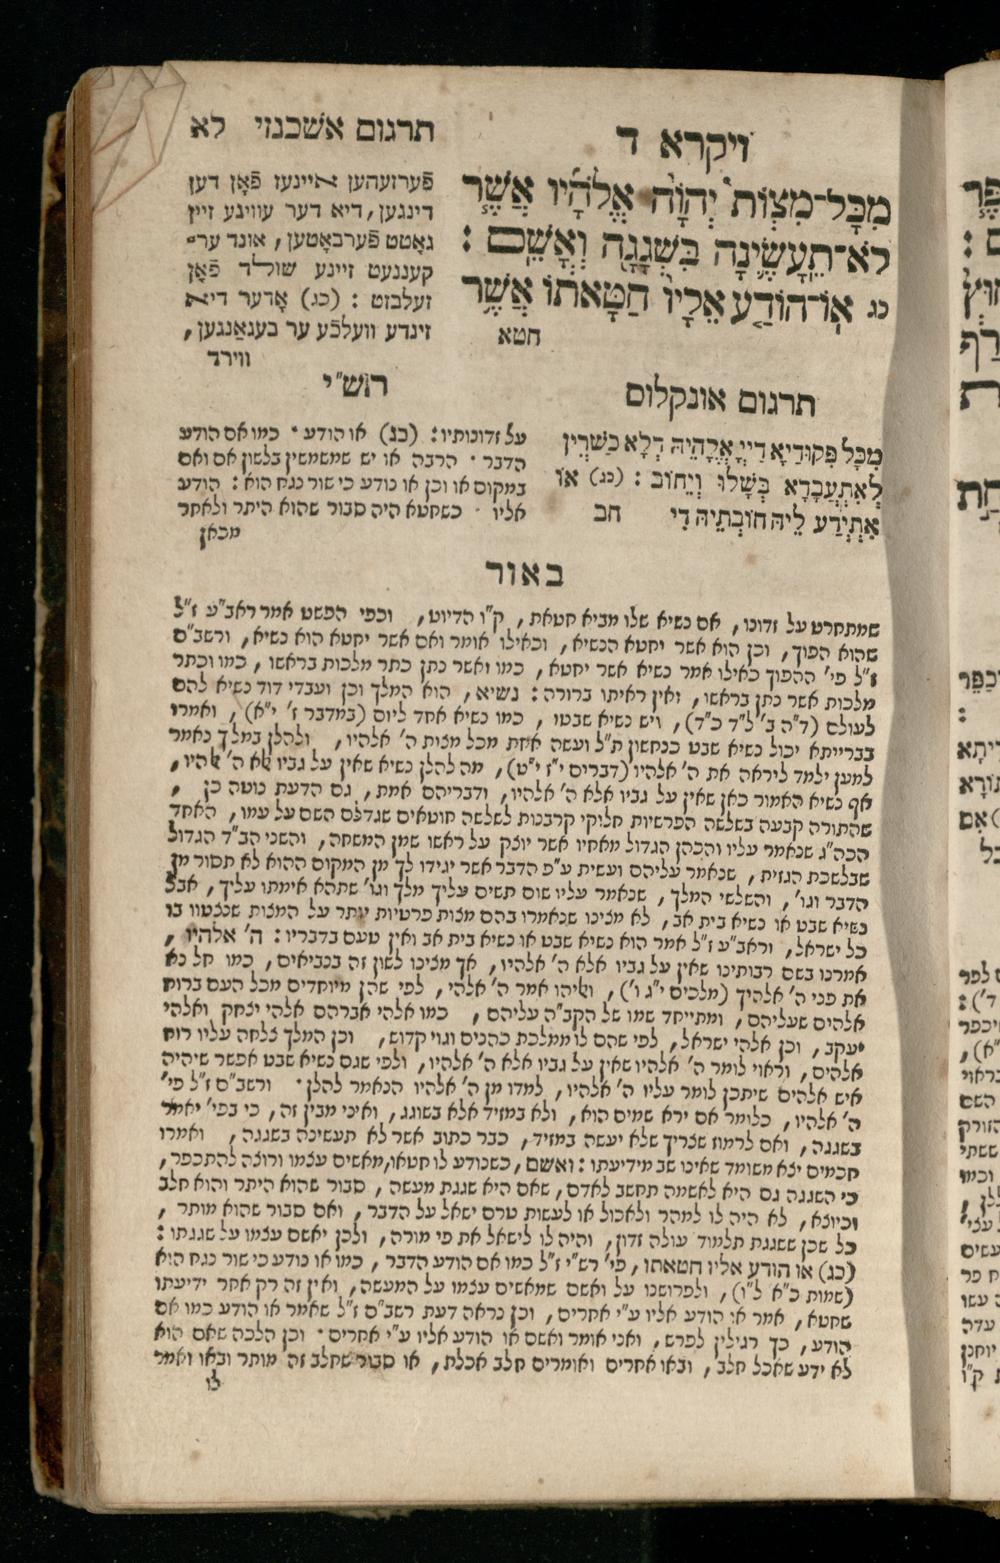 ויקרא ד
מִכָּל־מִצְוֺת֩ יְהוָ֨ה אֱלֹהָ֜יו אֲשֶׁ֧ר
לֹא־תֵעָשֶׂ֛ינָה בִּשְׁגָגָ֖ה וְאָשֵֽׁם :
כג אֽוֹ־הוֹדַ֤ע אֵלָיו֙ חַטָּאתוֹ אֲשֶׁ֥ר
חטא
תרגום אשכנזי לא
פֿערזעהען איינעז פֿאָן דען
דינגען, דיא דער עוויגע זיין
גאָטט פֿערבאָטען, אונד ער־
קעננעט זיינע שולד פֿאָן
זעלבזט : (כג) אָדער דיא
זינדע וועלכֿע ער בעגאַנגען,
ווירד
תרגום אונקלוס
מִכָּל פִּקּוּדַיָא דַיְיָ אֱלָהֵיהּ דְלָא כַשְׁרִין
לְאִתְעֲבָדָא בְּשָׁלוּ וְיֵחוֹב : (כג) אוֹ
אִתְיְדַע לֵיהּ חוֹבְתֵיהּ דִי חב
רש"י
על זדונותיו : (כג) או הודע · כמו אם הודע
הדבר · הרבה או יש שמשמשין בלשון אם ואם
במקום או וכן או נודע כי שור נגח הוא : הודע
אליו · כשחטא היה סבור שהוא היתר ולאחר
מכאן
באור
שמתחרט על זדונו, אם נשיא שלו מביא חטאת, ק"ו הדיוט, וכפי הפשט אמר ראב"ע ז"ל
שהוא הפוך, וכן הוא אשר יחטא הנשיא, וכאילו אומר ואם אשר יחטא הוא נשיא, ורשב"ם
ז"ל פי' ההפוך כאילו אמר נשיא אשר יחטא, כמו ואשר נתן כתר מלכות בראשו, כמו וכתר
מלכות אשר נתן בראשו, ואין ראיתו ברורה : נשיא, הוא המלך וכן ועבדי דוד נשיא להם
לעולם (ד"ה ב' ל"ד כ"ד), ויש נשיא שבטו, כמו נשיא אחד ליום (במדבר ז' י"א), ואמרו
בברייתא יכול נשיא שבט כנחשון ת"ל ועשה אחת מכל מצות ה' אלהיו, ולהלן במלך נאמר
למען ילמד ליראה את ה' אלהיו (דברים י"ז י"ט), מה להלן נשיא שאין על גביו אלא ה' אלהיו,
אף נשיא האמור כאן שאין על גביו אלא ה' אלהיו, ודבריהם אמת, גם הדעת נוטה כן,
שהתורה קבעה בשלשה הפרשיות חלוקי קרבנות לשלשה חוטאים שגדלם השם על עמו, האחד
הכה"ג שנאמר עליו והכהן הגדול מאחיו אשר יוצק על ראשו שמן המשחה, והשני הב"ד הגדול
שבלשכת הגזית, שנאמר עליהם ועשית ע"פ הדבר אשר יגידו לך מן המקום ההוא לא תסור מן
הדבר וגו', והשלשי המלך, שנאמר עליו שום תשים עליך מלך וגו' שתהא אימתו עליך, אבל
נשיא שבט או נשיא בית אב, לא מצינו שנאמרו בהם מצות פרטיות יותר על המצות שנצטוו בו
כל ישראל, וראב"ע ז"ל אמר הוא נשיא שבט או נשיא בית אב ואין טעם בדבריו : ה' אלהיו,
אמרנו בשם רבותינו שאין על גביו אלא ה' אלהיו, אך מצינו לשון זה בנביאים, כמו חל נא
את פני ה' אלהיך (מלכים י"ג ו'), ואליהו אמר ה' אלהי, לפי שהן מיוחדים מכל העם ברוח
אלהים שעליהם, ומתייחד שמו של הקב"ה עליהם, כמו אלהי אברהם אלהי יצחק ואלהי
יעקב, וכן אלהי ישראל, לפי שהם לו ממלכת כהנים וגוי קדוש, וכן המלך צלחה עליו רוח
אלהים, וראוי לומר ה' אלהיו שאין על גביו אלא ה' אלהיו, ולפי שגם נשיא שבט אפשר שיהיה
איש אלהים שיתכן לומר עליו ה' אלהיו, למדו מן ה' אלהיו הנאמר להלן · ורשב"ם ז"ל פי'
ה' אלהיו, כלומר אם ירא שמים הוא, ולא במזיד אלא בשוגג, ואיני מבין זה, כי בפי' יאמר
בשגגה, ואם לרמוז שצריך שלא יעשה במזיד, כבר כתוב אשר לא תעשינה בשגגה, ואמרו
חכמים יצא משומד שאינו שב מידיעתו : ואשם, כשנודע לו חטאו, מאשים עצמו ורוצה להתכפר,
כי השגגה גם היא לאשמה תחשב לאדם, שאם היא שגגת מעשה, סבור שהוא היתר והוא חלב
וכיוצא, לא היה לו למהר ולאכול או לעשות טרם ישאל על הדבר, ואם סבור שהוא מותר,
כל שכן ששגגת תלמוד עולה זדון, והיה לו לישאל את פי מורה, ולכן יאשם עצמו על שגגתו :
(כג) או הודע אליו חטאתו, פי' רש"י ז"ל כמו אם הודע הדבר, כמו או נודע כי שור נגח הוא
(שמות כ"א ל"ו), ולפרושנו על ואשם שמאשים עצמו על המעשה, ואין זה רק אחר ידיעתו
שחטא, אמר או הודע אליו ע"י אחרים, וכן נראה דעת רשב"ם ז"ל שאמר או הודע כמו אם
הודע, כך רגילין לפרש, ואני אומר ואשם או הודע אליו ע"י אחרים · וכן הלכה שאם הוא
לא ידע שאכל חלב, ובאו אחרים ואומרים חלב אכלת, או סבור שחלב זה מותר ובאו ואמרו
לו